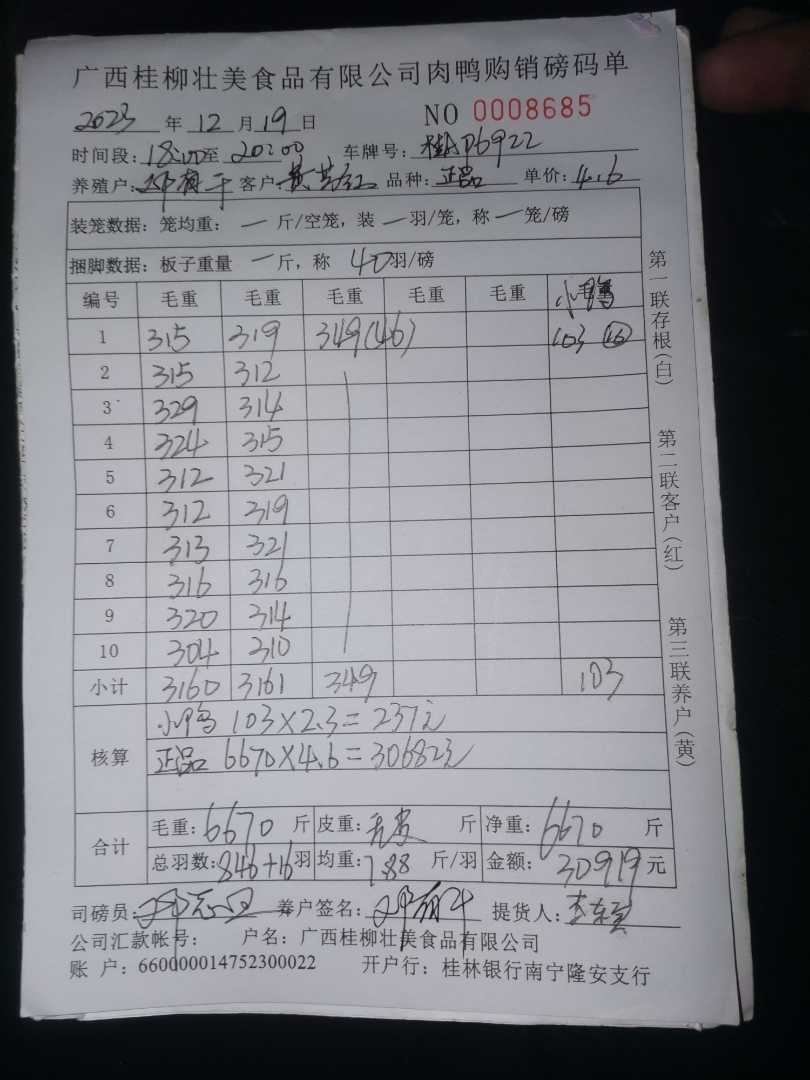 广西桂柳壮美食品有限公司肉鸭购销磅码单
2023 年 12 月 19 日 NO 0008685
时间段：18:00至 20:00 车牌号：桂AP6922
养殖户： 客户 黄 品种：正品 单价：4.6
装笼数据：笼均重： 一 斤/空笼，装 一 羽/笼，称 一 笼/磅
捆脚数据：板子重量 一 斤，称 40 羽/磅
编号 毛重 毛重 毛重 毛重 毛重 小鸭
1 315 319 349(46) 103 (16)
2 315 312
3 329 314
4 324 315
5 312 321
6 312 319
7 313 321
8 316 316
9 320 314
10 304 310
小计 3160 3161 349 103
核算 小鸭 103×2.3=237元
正品 6670×4.6=30682元
合计 毛重：6670 斤 皮重：无皮 斤 净重：6670 斤
总羽数：846+16羽 均重：7.88 斤/羽 金额：30919元
司磅员： 养户签名： 提货人：
公司汇款帐号： 户名：广西桂柳壮美食品有限公司
账 户：660000014752300022 开户行：桂林银行南宁隆安支行
第一联存根(白)
第二联客户(红)
第三联养户(黄)